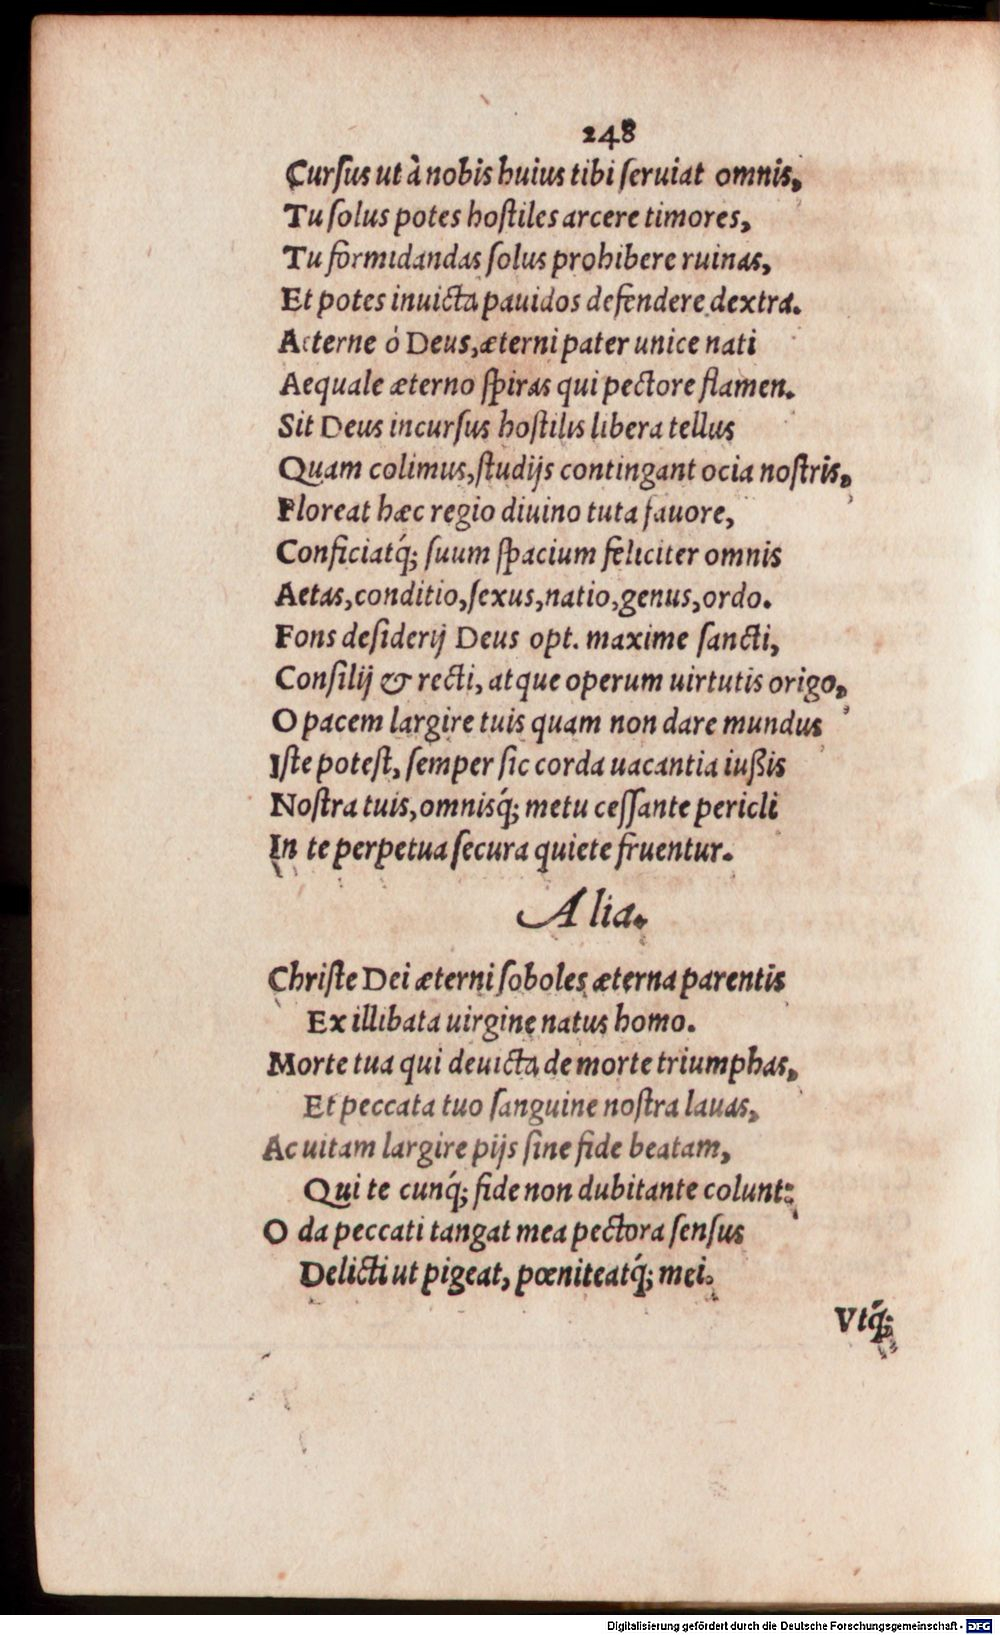 248
Curſus ut à nobis huius tibi ſeruiat omnis,
Tu ſolus potes hoſtiles arcere timores,
Tu formidandas ſolus prohibere ruinas,
Et potes inuicta pauidos defendere dextra.
Aeterne ó Deus, æterni pater unice nati
Aequale æterno ſpiras qui pectore flamen.
Sit Deus incurſus hoſtilis libera tellus
Quam colimus, ſtudijs contingant ocia noſtris,
Floreat hæc regio diuino tuta fauore,
Conficiatq́; ſuum ſpacium feliciter omnis
Aetas, conditio, ſexus, natio, genus, ordo.
Fons deſiderij Deus opt. maxime ſancti,
Conſilij & recti, atque operum uirtutis origo,
O pacem largire tuis quam non dare mundus
Iſte poteſt, ſemper ſic corda uacantia iußis
Noſtra tuis, omnisq́; metu ceſſante pericli
In te perpetua ſecura quiete fruentur.
Alia.
Chriſte Dei æterni ſoboles æterna parentis
Ex illibata uirgine natus homo.
Morte tua qui deuicta de morte triumphas,
Et peccata tuo ſanguine noſtra lauas,
Ac uitam largire pijs ſine fide beatam,
Qui te cunq́; fide non dubitante colunt:
O da peccati tangat mea pectora ſenſus
Delicti ut pigeat, pœniteatq́; mei.
Vtq́;
Digitalisierung gefördert durch die Deutsche Forschungsgemeinschaft - DFG